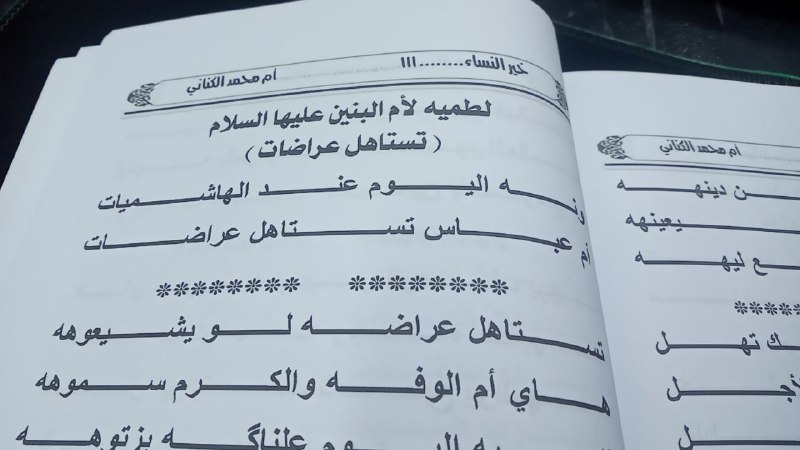 خير النساء........١١١ أم محمد الكناني
لطميه لأم البنين عليها السلام
( تستاهل عراضات )
ونـه اليـوم عنـد الهاشميات
أم عبـاس تستـاهل عراضـات
******** ********
تستـاهل عراضـه لـو يشيعوهه
هـاي أم الوفـه والكـرم سموهه
علناگـه يزتوهـه
أم محمد الكناني
ـن دينهـه
يعينهه
ـع ليهـه
*****
ـك تهـل
لأجـل
ـل